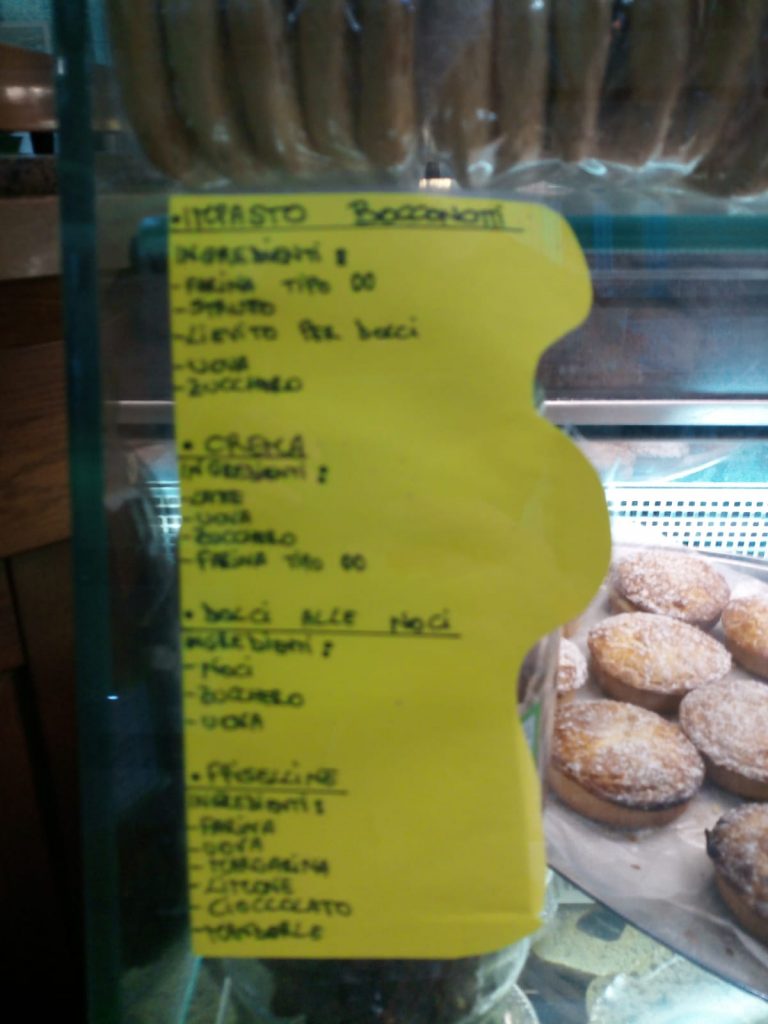 • IMPASTO BOCCONOTTI
INGREDIENTI :
- FARINA TIPO 00
- STRUTTO
- LIEVITO PER DOLCI
- UOVA
- ZUCCHERO
• CREMA
INGREDIENTI :
- LATTE
- UOVA
- ZUCCHERO
- FARINA TIPO 00
• DOLCI ALLE NOCI
INGREDIENTI :
- NOCI
- ZUCCHERO
- UOVA
• FRISELLINE
INGREDIENTI :
- FARINA
- UOVA
- MARGARINA
- LIMONE
- CIOCCOLATO
- MANDORLE